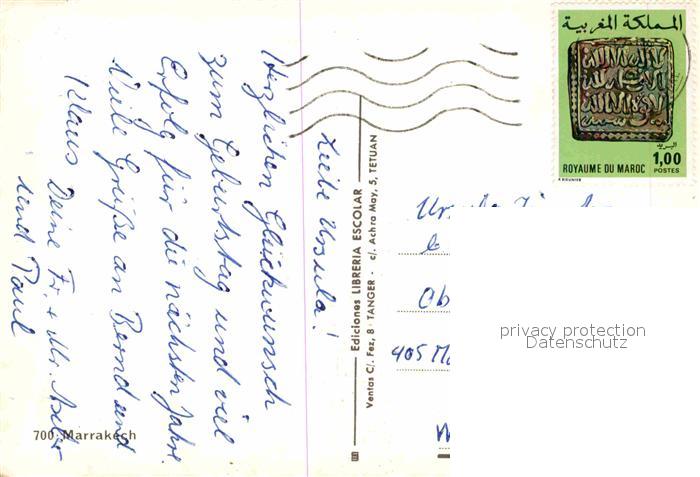 Liebe Ursula!
Herzlichen Glückwunsch
zum Geburtstag und viel
Erfolg für die nächsten Jahre.
Viele Grüße an Bernd und
Klaus Deine Fr. + Mr.
und Paul
700. Marrakech
Ediciones LIBRERIA ESCOLAR
Ventas C/. Fez, 8 - TANGER - c/. Achra May, 5, TETUAN
المملكة المغربية
البريد
1,00
ROYAUME DU MAROC POSTES
Ob
405
privacy protection
Datenschutz